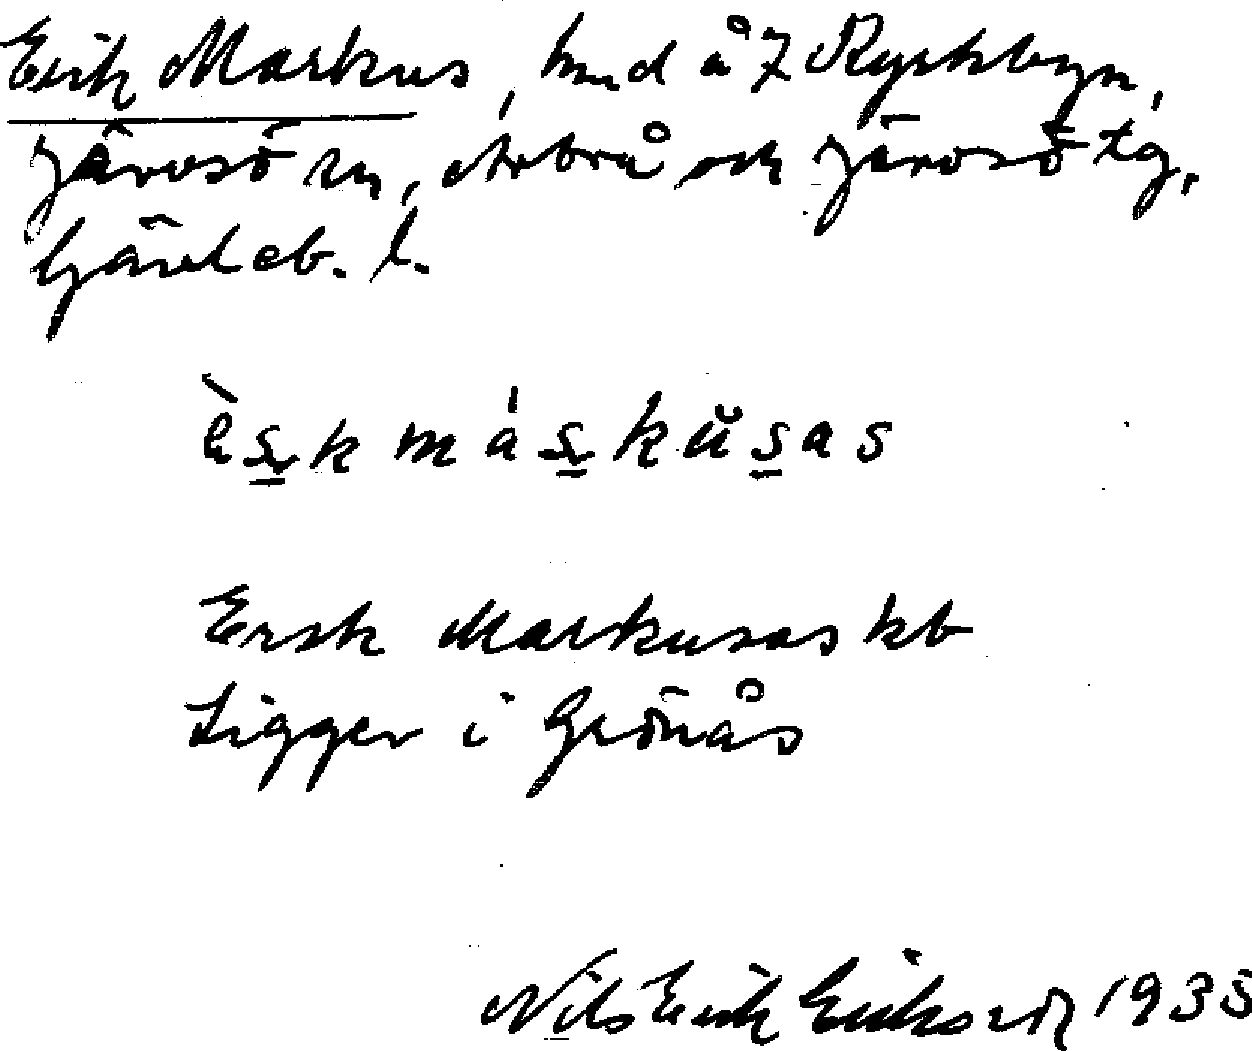 Erik Markus, hmd å 7 Ryckbyn,
Järvsö sn, Arbrå och Järvsö tg,
Gävleb. l.
ès̱k más̱kŭs̱as
Ersk Markusas kb
Ligger i Grönås
Nils Erik Eriksson 1935